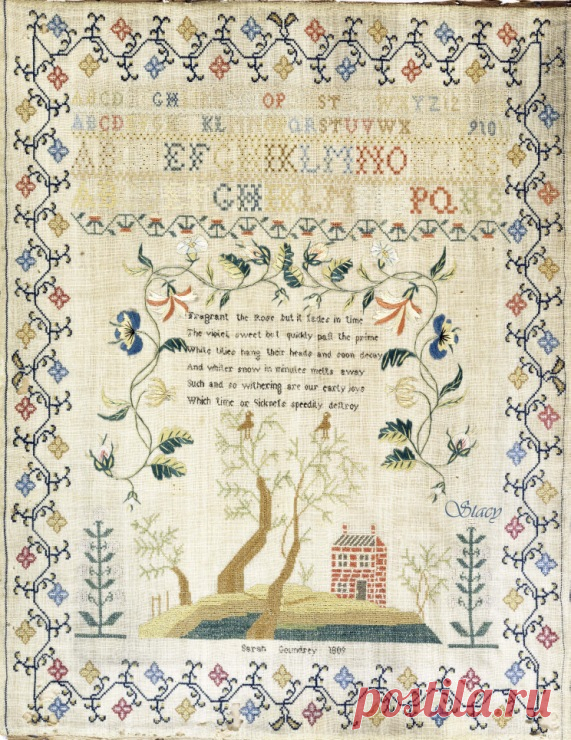 ABCD GH OP ST WXYZ12
ABCD KLMNOPQRSTUVWX 910
AB EFGHIKLMNO
AB GHIKLM PQRS
Fragrant the Rose but it fades in time
The violet sweet but quickly past the prime
White lilies hang their heads and soon decay
And whiter snow in minutes melts away
Such and so withering are our early joys
Which time or Sickneſs speedily deſtroy
Stacy
Sarah Goundrey 1809
postila.ru